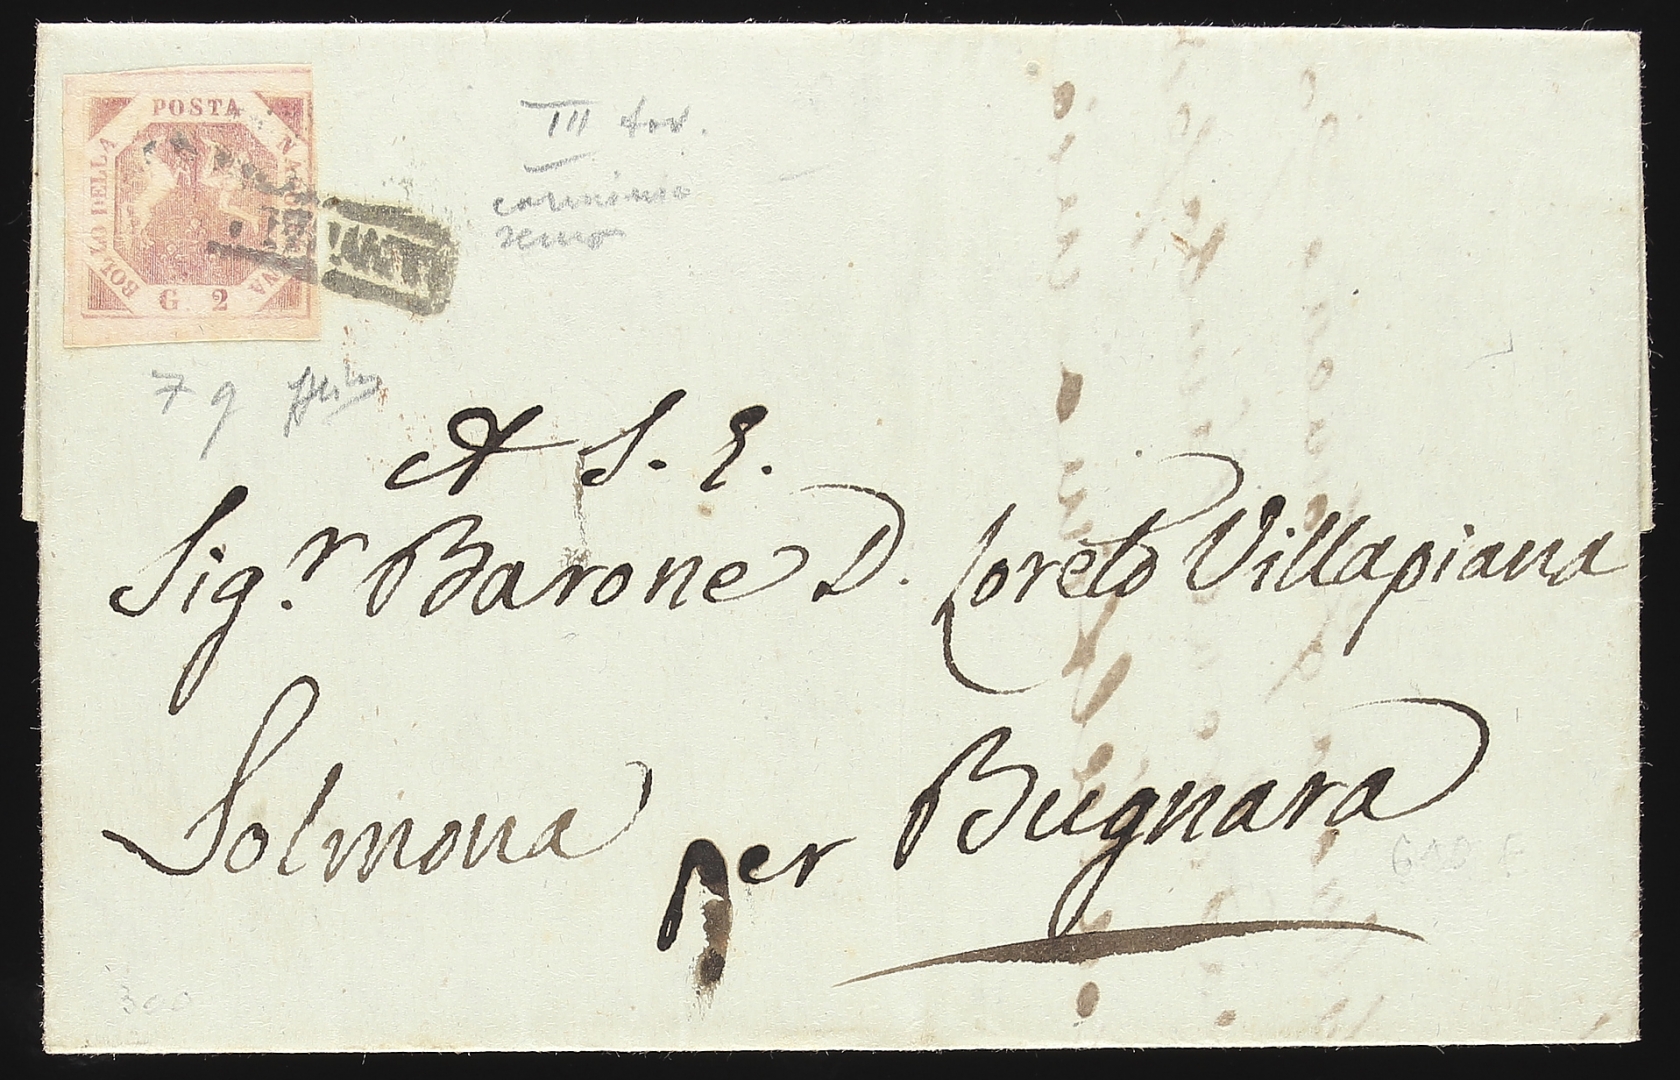 POSTA
NAPOLETANA
BOLLO DELLA
G. 2
III tav.
carminio
7 g
A S. E.
Sig.r Barone D. Loreto Villapiana
Solmona per Bugnara
300